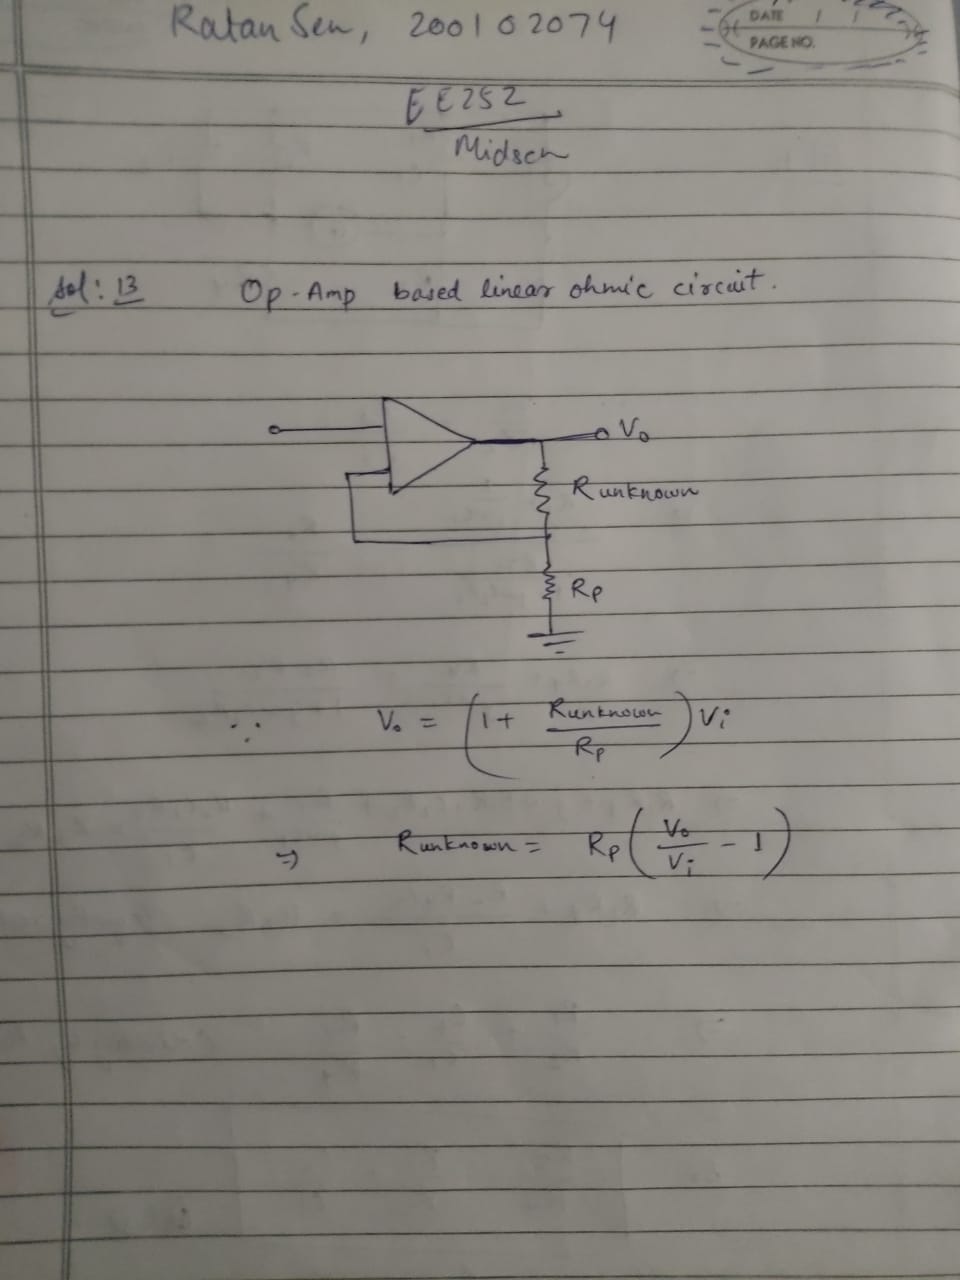 Ratan Sen, 200102074
DATE / /
PAGE NO.
EE252
Midsem
Sol: 13 Op-Amp based linear ohmic circuit.
Vo
Runknown
Rp
∴ Vo = (1 + Runknown / Rp) Vi
⇒ Runknown = Rp (Vo / Vi - 1)